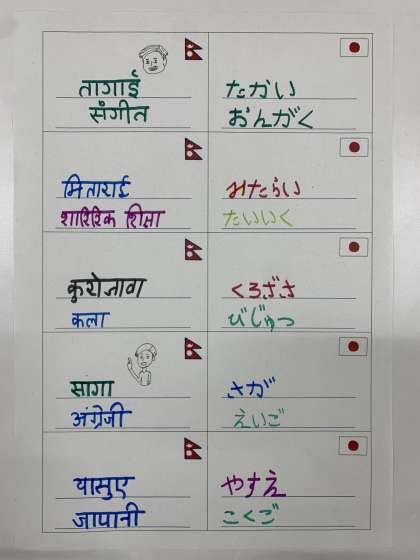 तागाई
संगीत
たかい
おんがく
मिताराई
शारिरिक शिक्षा
みたらい
たいいく
कुरोजावा
कला
くろざさ
びじゅつ
सागा
अंग्रेजी
さが
えいご
यासुए
जापानी
やすえ
こくご